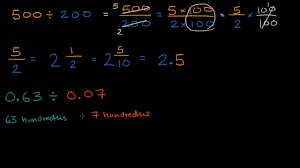 500 ÷ 200 = 5 500/200 2 = 5 × 100/2 × 100 = 5/2 × 100/100 1
5/2 = 2 1/2 = 2 5/10 = 2.5
0.63 ÷ 0.07
63 hundredths ÷ 7 hundredths